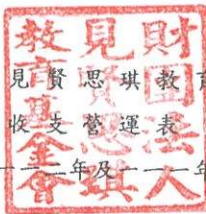 財團法人
見賢思琪
教育基金會
見賢思琪教育
收支營運表
一一二年及一一一年